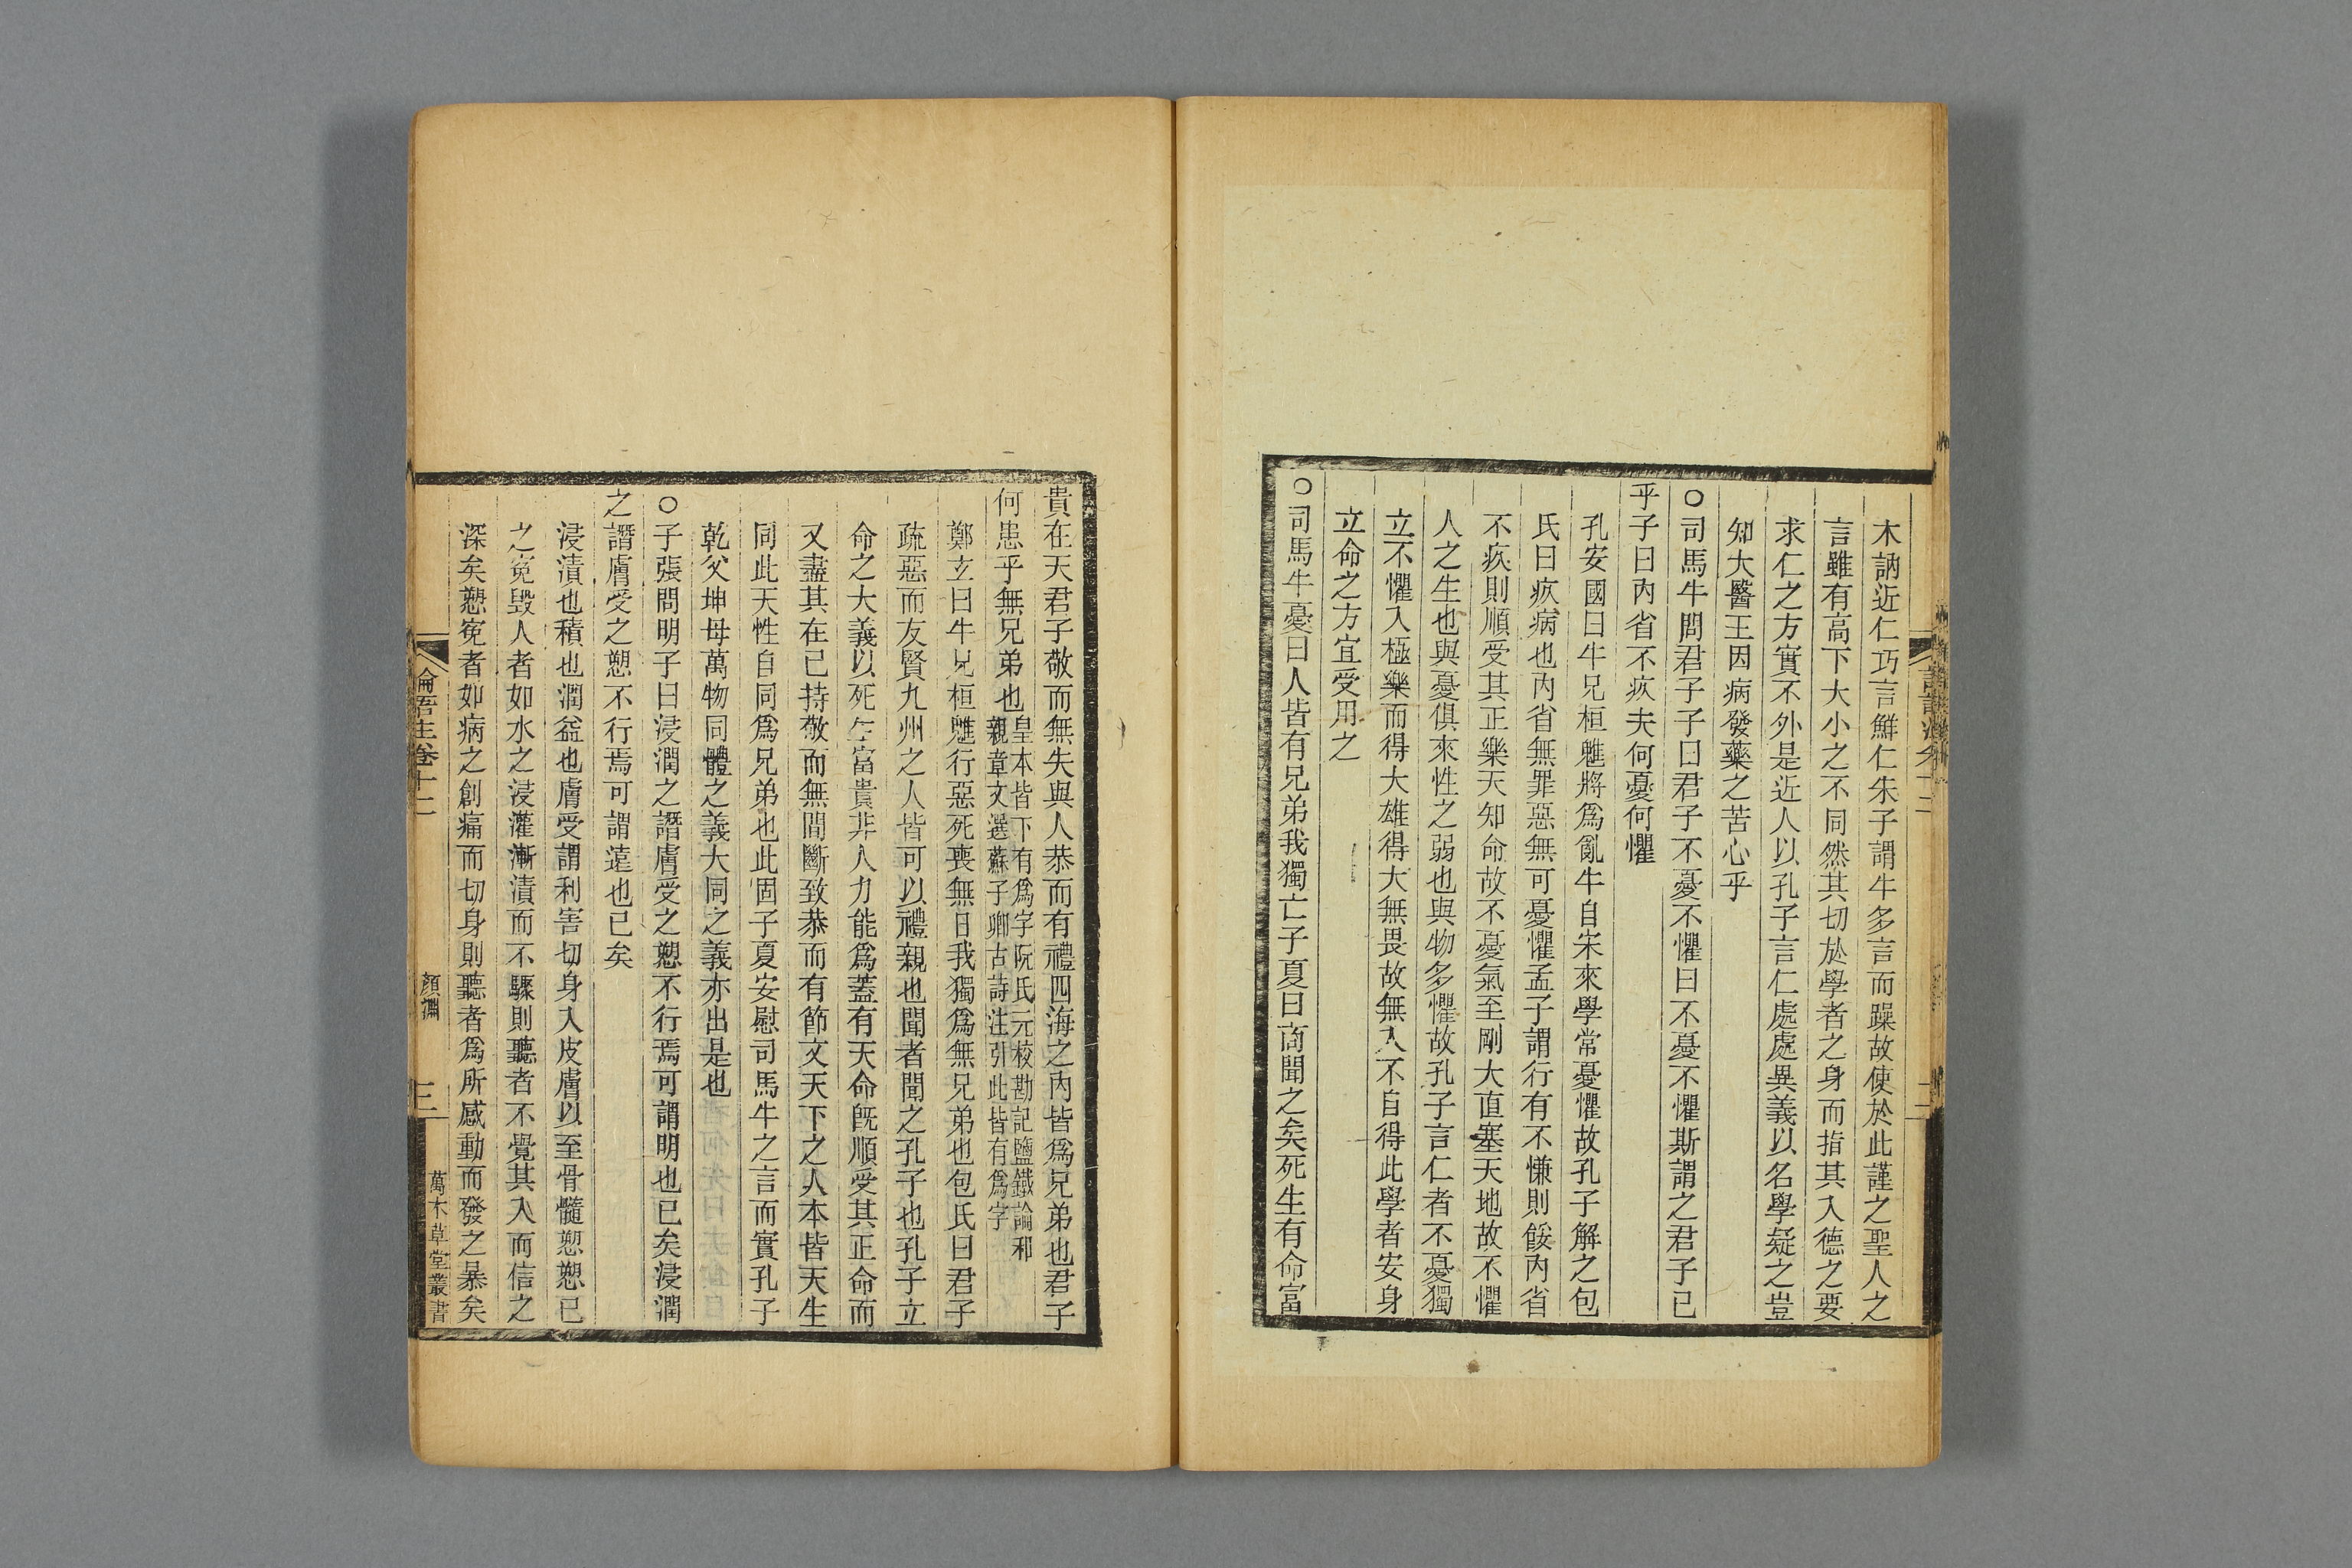 木訥近仁巧言鮮仁朱子謂牛多言而躁故使於此謹之聖人之
言雖有高下大小之不同然其切於學者之身而指其入德之要
求仁之方實不外是近人以孔子言仁處處異義以名學疑之豈
知大醫王因病發藥之苦心乎
○司馬牛問君子子曰君子不憂不懼曰不憂不懼斯謂之君子已
乎子曰內省不疚夫何憂何懼
孔安國曰牛兄桓魋將爲亂牛自宋來學常憂懼故孔子解之包
氏曰疚病也內省無罪惡無可憂懼孟子謂行有不慊則餒內省
不疚則順受其正樂天知命故不憂氣至剛大直塞天地故不懼
人之生也與憂俱來性之弱也與物多懼故孔子言仁者不憂獨
立不懼入極樂而得大雄得大無畏故無入不自得此學者安身
立命之方宜受用之
○司馬牛憂曰人皆有兄弟我獨亡子夏曰商聞之矣死生有命富
貴在天君子敬而無失與人恭而有禮四海之內皆爲兄弟也君子
何患乎無兄弟也
皇本皆下有爲字阮氏元校勘記鹽鐵論和
親章文選蘇子卿古詩注引此皆有爲字
鄭玄曰牛兄桓魋行惡死喪無日我獨爲無兄弟也包氏曰君子
疏惡而友賢九州之人皆可以禮親也聞者聞之孔子也孔子立
命之大義以死生富貴非人力能爲蓋有天命旣順受其正命而
又盡其在已持敬而無間斷致恭而有節文天下之人本皆天生
同此天性自同爲兄弟也此固子夏安慰司馬牛之言而實孔子
乾父坤母萬物同體之義大同之義亦出是也
○子張問明子曰浸潤之譖膚受之愬不行焉可謂明也已矣浸潤
之譖膚受之愬不行焉可謂遠也已矣
浸漬也積也潤益也膚受謂利害切身入皮膚以至骨髓愬愬已
之冤毀人者如水之浸灌漸漬而不驟則聽者不覺其入而信之
深矣愬冤者如病之創痛而切身則聽者爲所感動而發之暴矣
論語注卷十二
顏淵
三
萬木草堂叢書